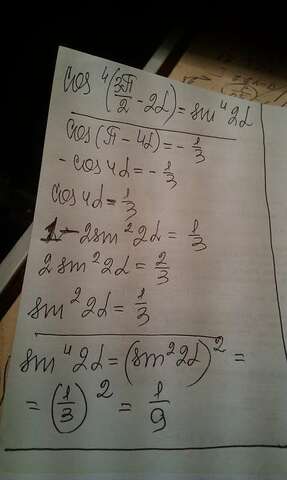 cos⁴(3π/2 - 2α) = sin⁴2α
cos(π - 4α) = -1/3
- cos4α = -1/3
cos4α = 1/3
1 - 2sin²2α = 1/3
2sin²2α = 2/3
sin²2α = 1/3
sin⁴2α = (sin²2α)² =
= (1/3)² = 1/9